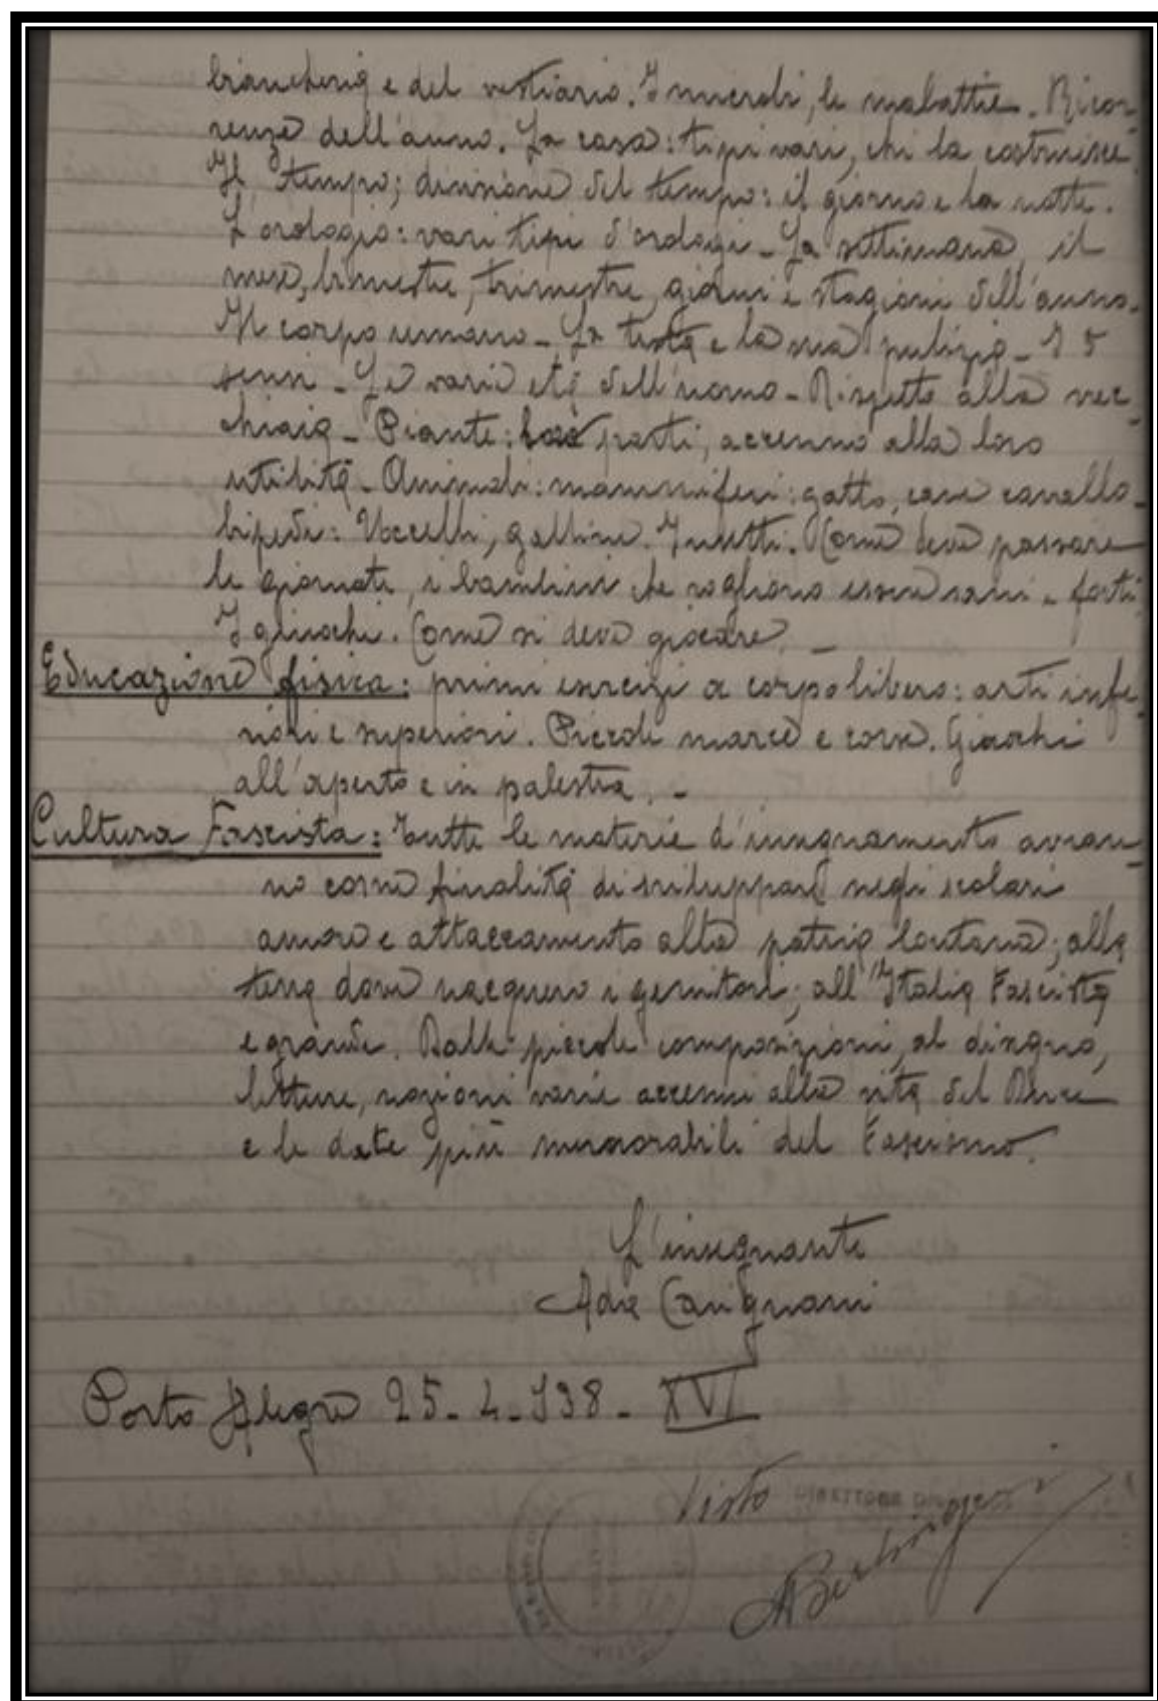 biancheria e del vestiario. I microbi, le malattie. Ricor-
renze dell'anno. La casa: tipi vari, chi la costruisce.
Il tempo; divisione del tempo: il giorno e la notte.
L'orologio: vari tipi d'orologi - La settimana, il
mese, bimestre, trimestre, giorni e stagioni dell'anno.
Il corpo umano - La testa e la sua pulizia - I 5
sensi - Le varie età dell'uomo - Rispetto alla vec-
chiaia - Piante: parti, accenno alla loro
utilità - Animali: mammiferi: gatto, cane cavallo -
bipedi: Uccelli, galline. Insetti. Come deve passare
le giornate, i bambini che vogliono essere sani e forti
I giuochi. Come si deve giocare. -
Educazione fisica: primi esercizi a corpo libero: arti infe-
riori e superiori. Piccole marce e corse. Giuochi
all'aperto e in palestra. -
Cultura Fascista: Tutte le materie d'insegnamento avran-
no come finalità di sviluppare negli scolari
amore e attaccamento alla patria lontana; alla
terra dove nacquero i genitori; all'Italia Fascista
e grande. Dalle piccole composizioni, al disegno,
letture, nozioni varie accenni alla vita del Duce
e le date più memorabili del Fascismo.
L'insegnante
Ada Carignani
Porto Alegre 25-4-938 - XVI
Visto DIRETTORE